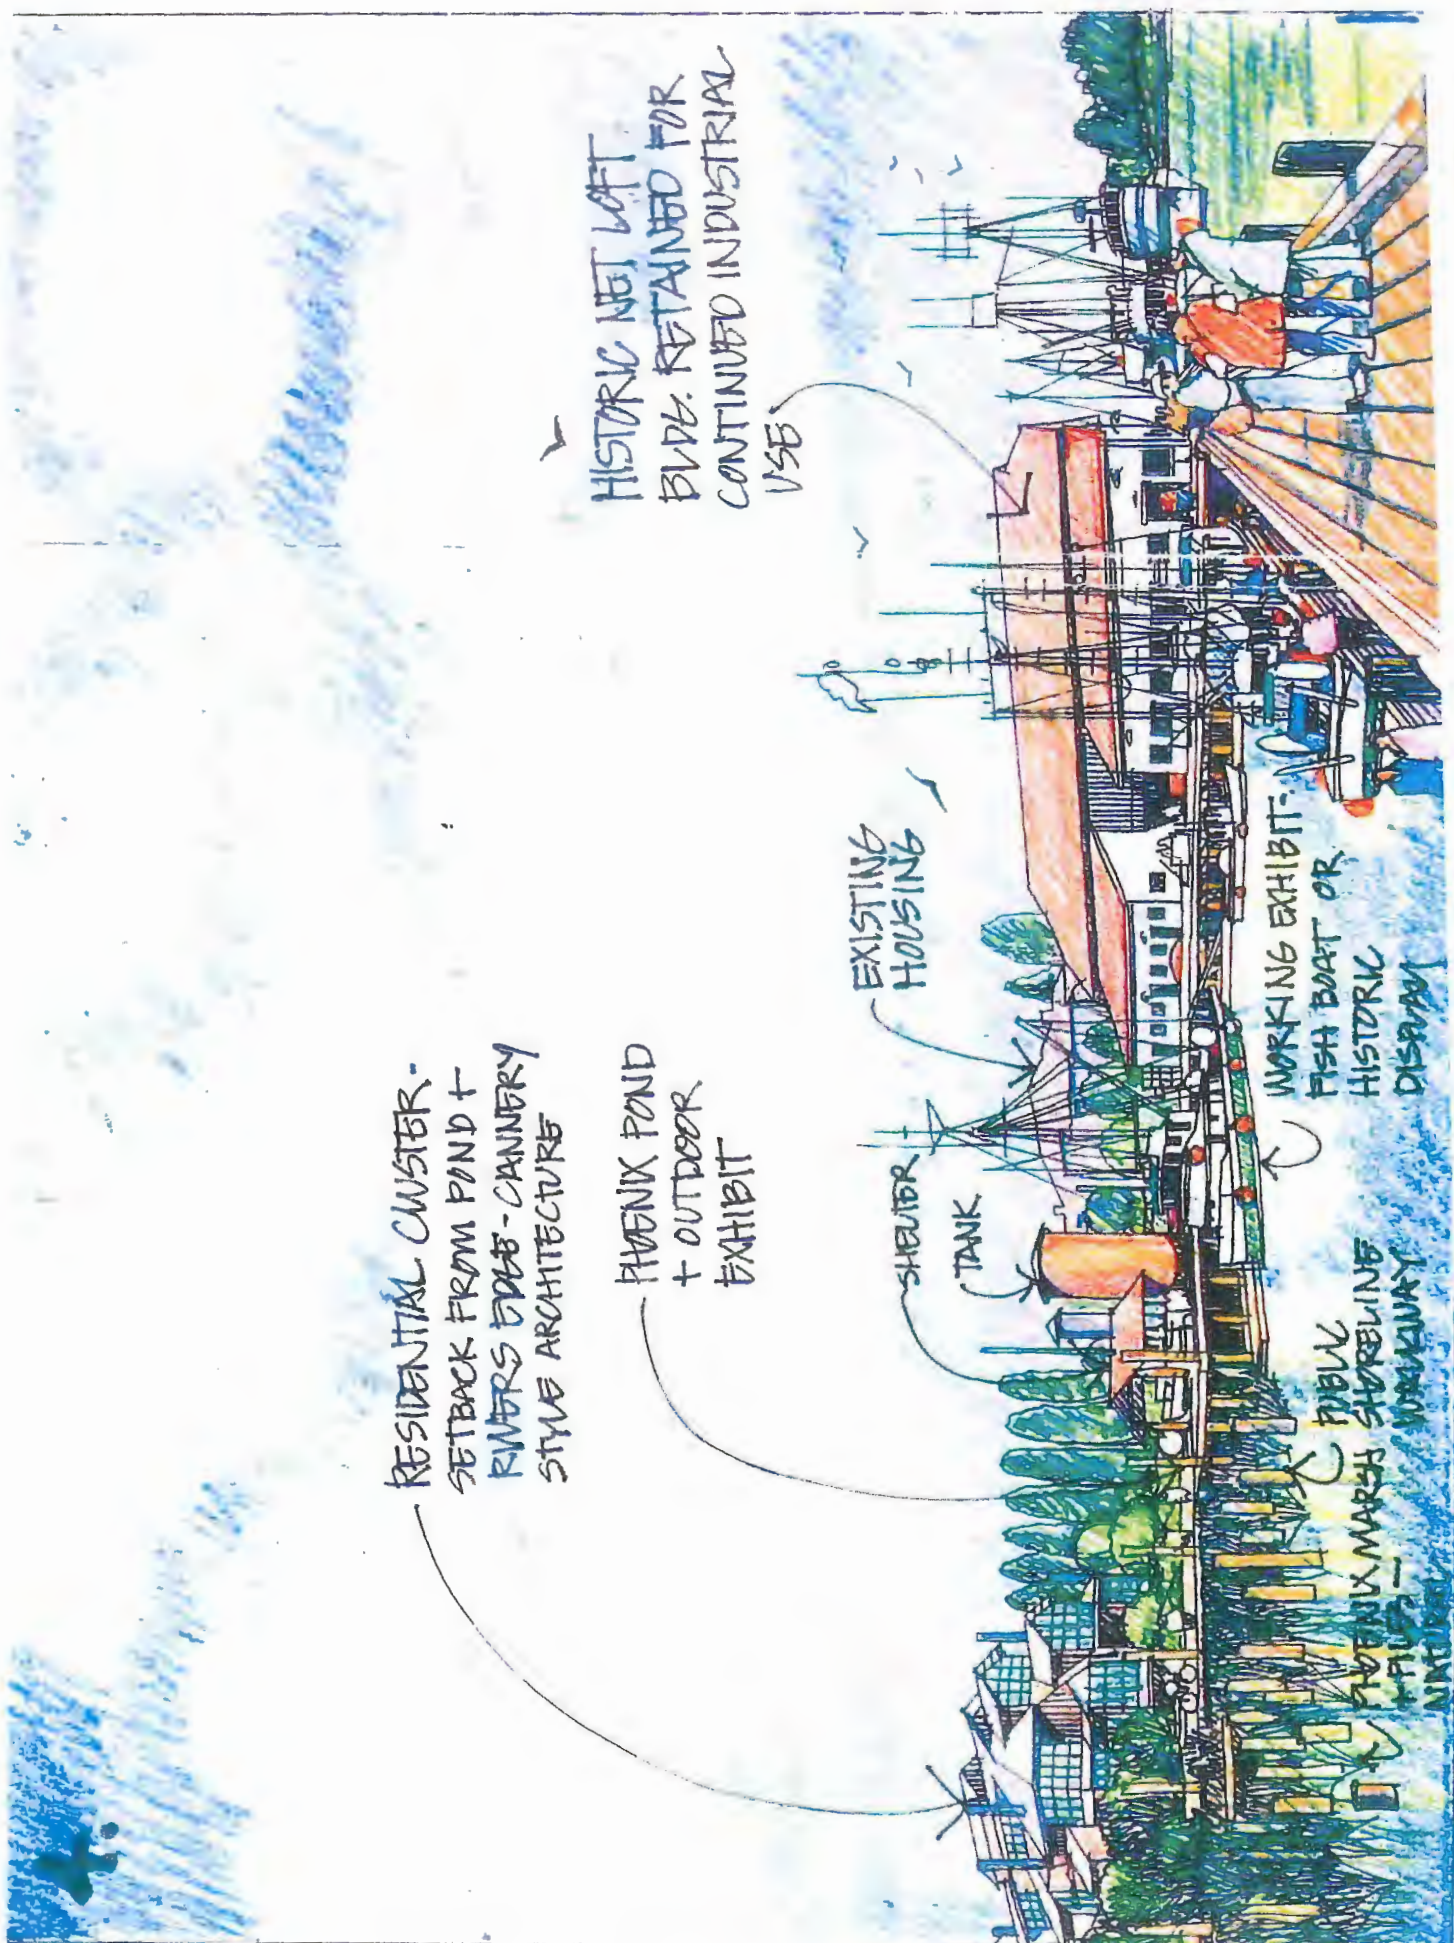 RESIDENTIAL CLUSTER-
SETBACK FROM POND +
RIVERS EDGE-CANNERY
STYLE ARCHITECTURE
PHOENIX POND
+ OUTDOOR
EXHIBIT
HISTORIC NET LOFT
BLDG. RETAINED FOR
CONTINUED INDUSTRIAL
USE
EXISTING
HOUSING
SHELTER
TANK
WORKING EXHIBIT-
FISH BOAT OR
HISTORIC
DISPLAY
PUBLIC
SHORELINE
WALKWAY
PHOENIX MARSH
+ PILES -